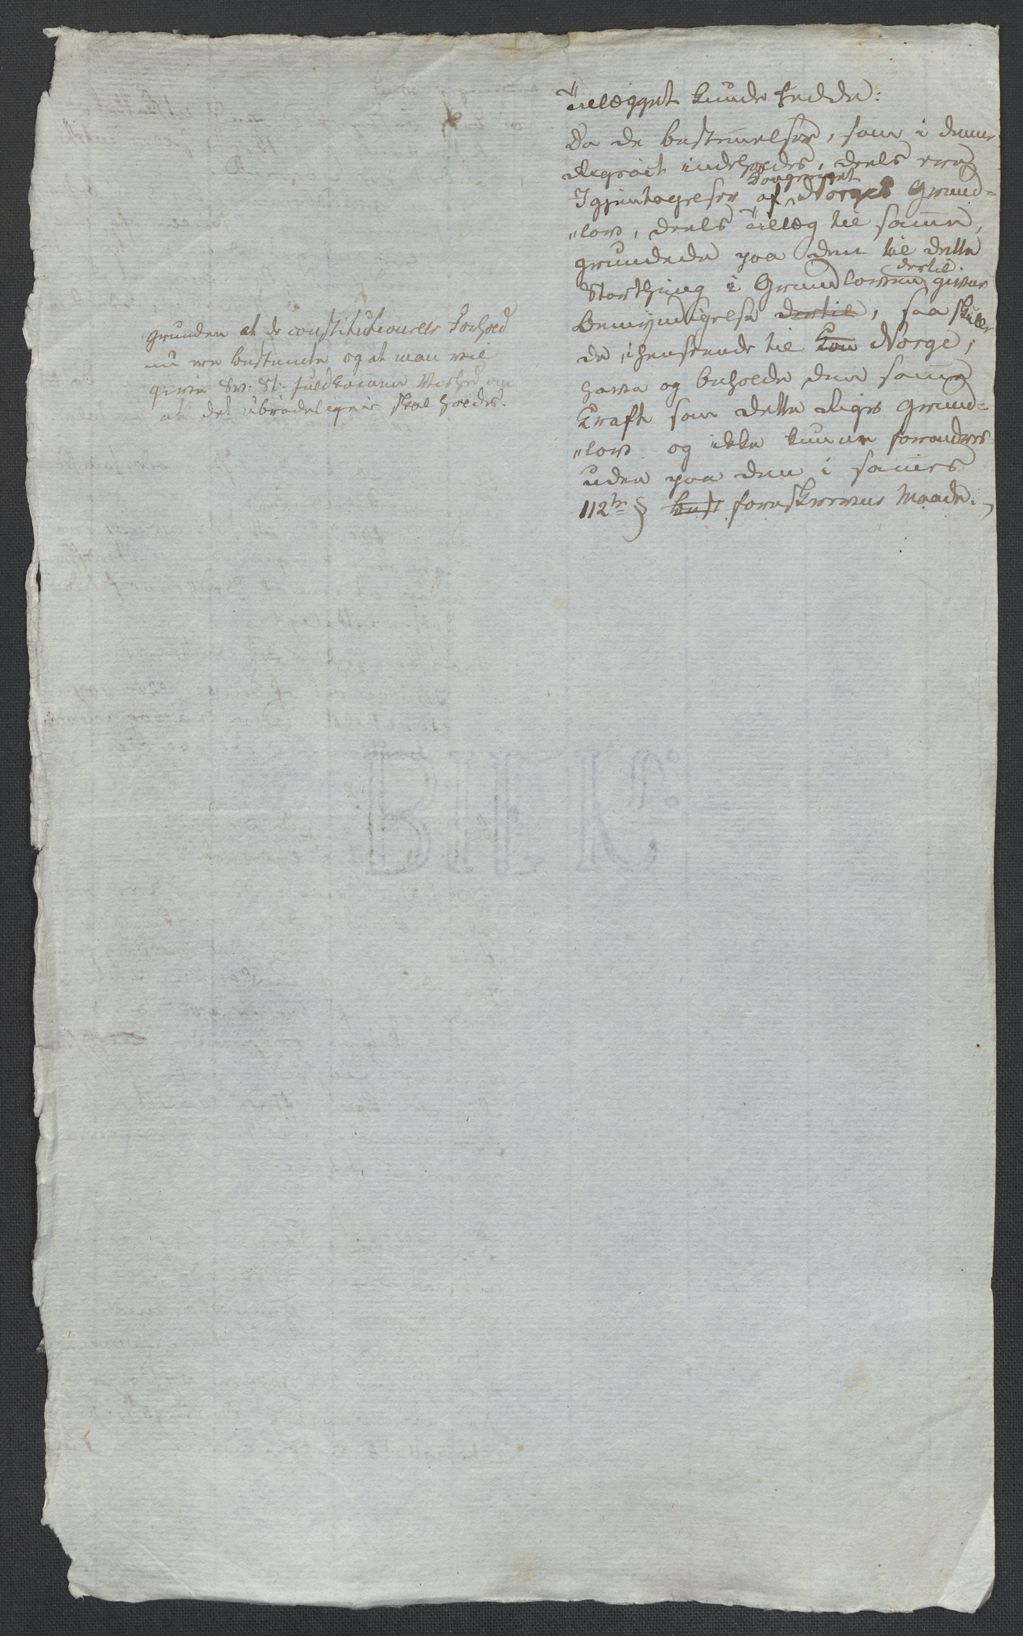 Tillægget kunde hedde:
Da de bestemmelser, som i denne
Rigsact indeholdes, deels ere
Igjentagelser af Kongeriget Norges Grund-
„lov, deels Tillæg til samme,
grundede paa den til dette
Storthing i Grundloven dertil givne
Bemyndigelse dertil, saa skulle
de ihenseende til Kon Norge,
have og beholde den samme
Kraft som dette Rigs Grund-
„lov og ikke kunne forandres
uden paa den i sammes
112te § foreskrevne Maade.
grunden at de constitutionelle Forhold
nu ere bestemte og at man vil
give Sv: St: fuldkommen Vished om
at det ubrødeligen skal holdes.
BHK